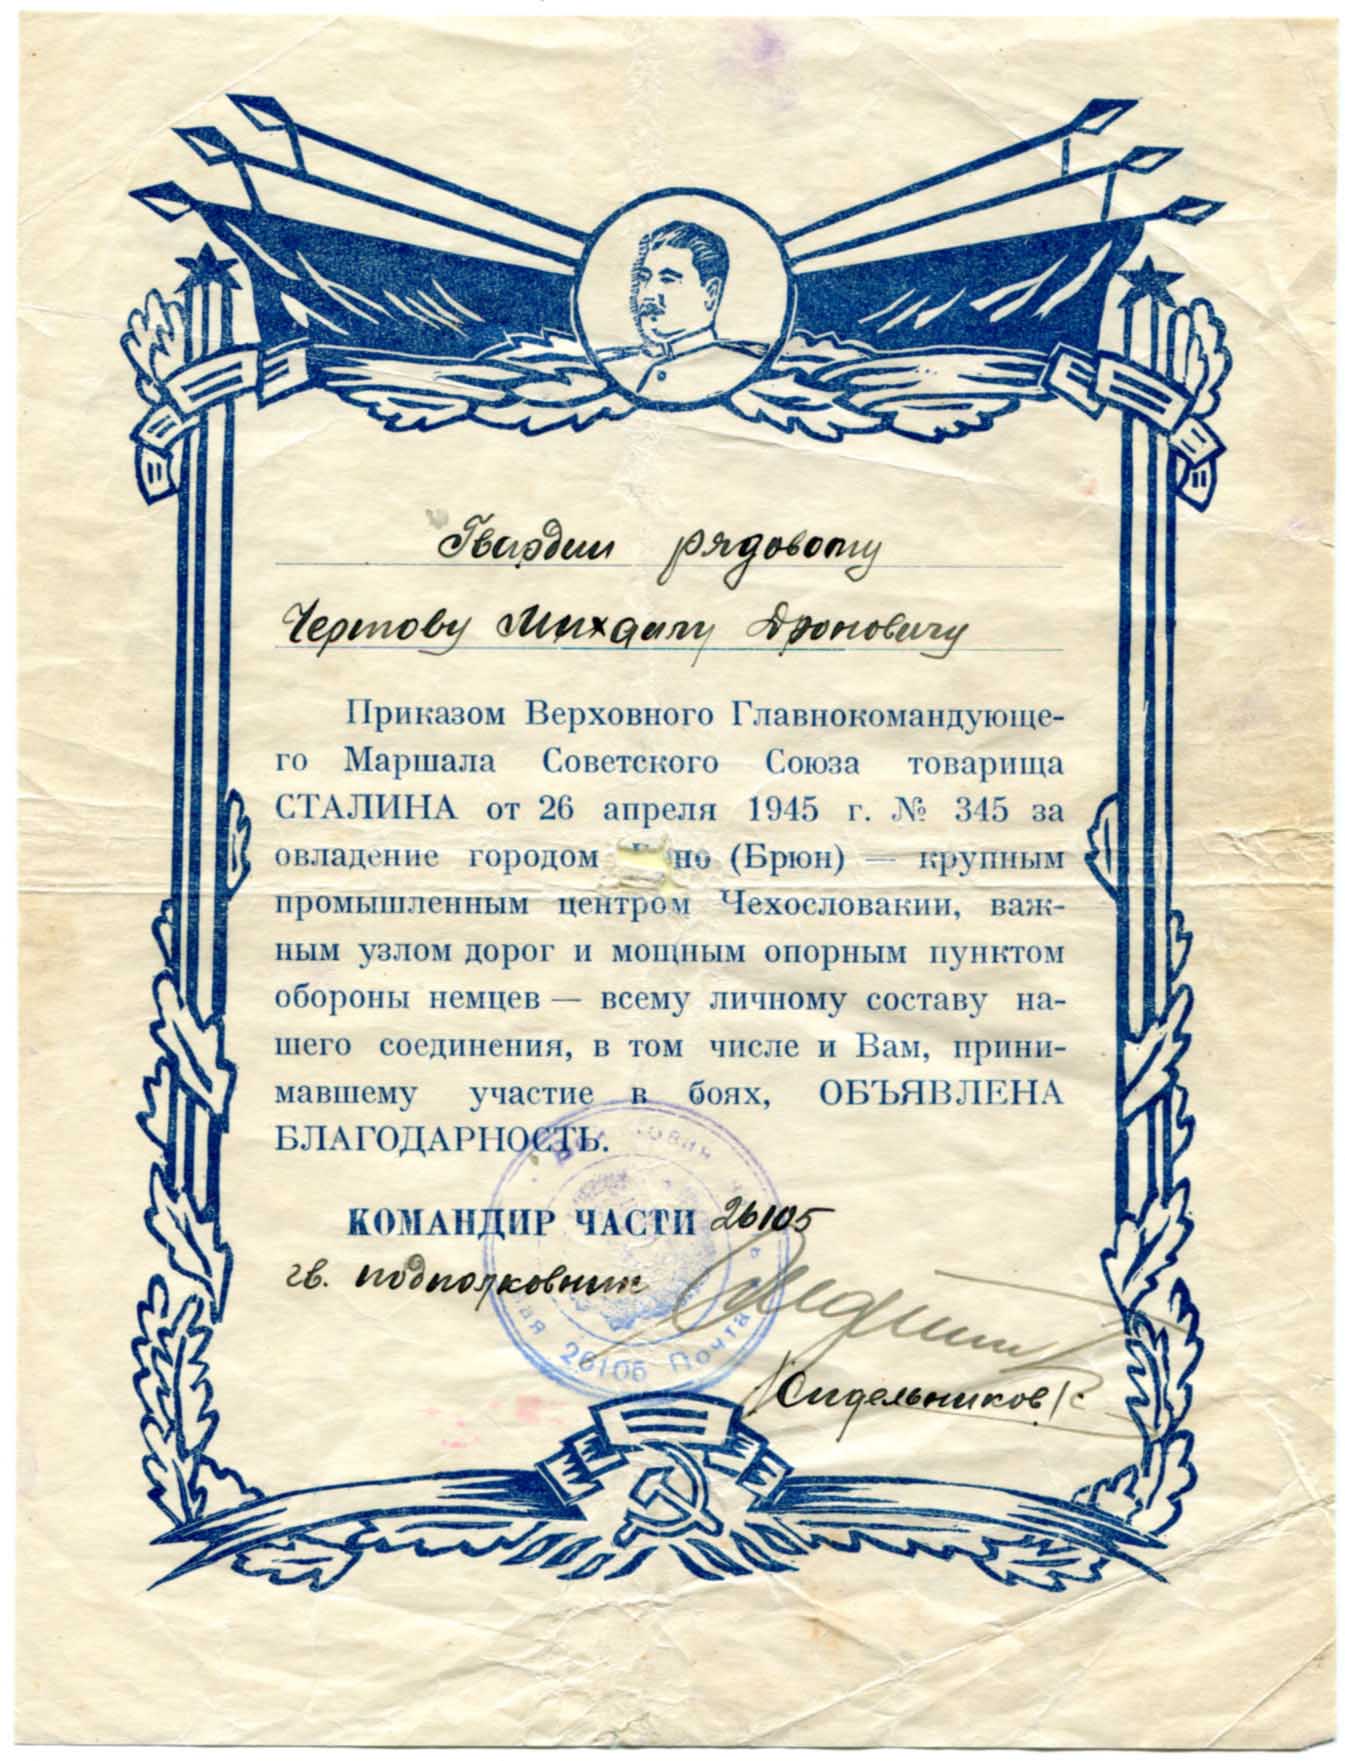 Гвардии рядовому
Чертову Михаилу Дроновичу
Приказом Верховного Главнокомандующе-
го Маршала Советского Союза товарища
СТАЛИНА от 26 апреля 1945 г. № 345 за
овладение городом но (Брюн) — крупным
промышленным центром Чехословакии, важ-
ным узлом дорог и мощным опорным пунктом
обороны немцев — всему личному составу на-
шего соединения, в том числе и Вам, прини-
мавшему участие в боях, ОБЪЯВЛЕНА
БЛАГОДАРНОСТЬ.
КОМАНДИР ЧАСТИ 26105
гв. подполковник
Сидельников
26106 Почта